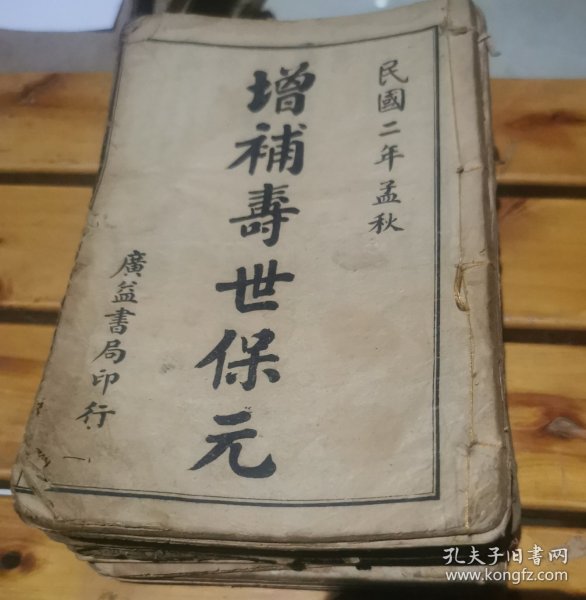 民國二年孟秋
增補壽世保元
廣益書局印行
孔夫子旧书网
www.kongfz.com